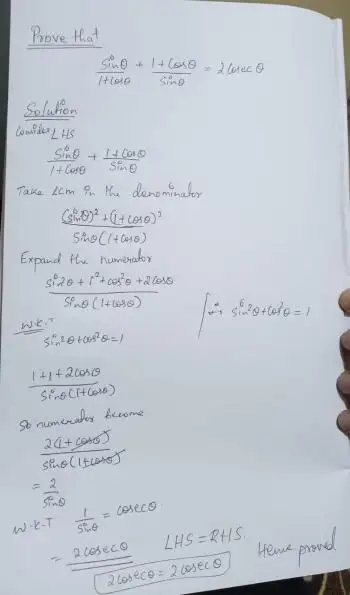 Prove that
sinθ/1+cosθ + 1+cosθ/sinθ = 2cosec θ
Solution
Consider LHS
sinθ/1+cosθ + 1+cosθ/sinθ
Take LCM in the denominator
(sinθ)²+(1+cosθ)²/sinθ(1+cosθ)
Expand the numerator
sin2θ + 1²+cos²θ+2cosθ/sinθ(1+cosθ)
∵ sin²θ+cos²θ=1
W.K.T
sin²θ+cos²θ=1
1+1+2cosθ/sinθ(1+cosθ)
So numerator become
2(1+cosθ)/sinθ(1+cosθ)
= 2/sinθ
W.K.T 1/sinθ = cosecθ
= 2cosecθ LHS=RHS.
2cosecθ = 2cosecθ Hence proved